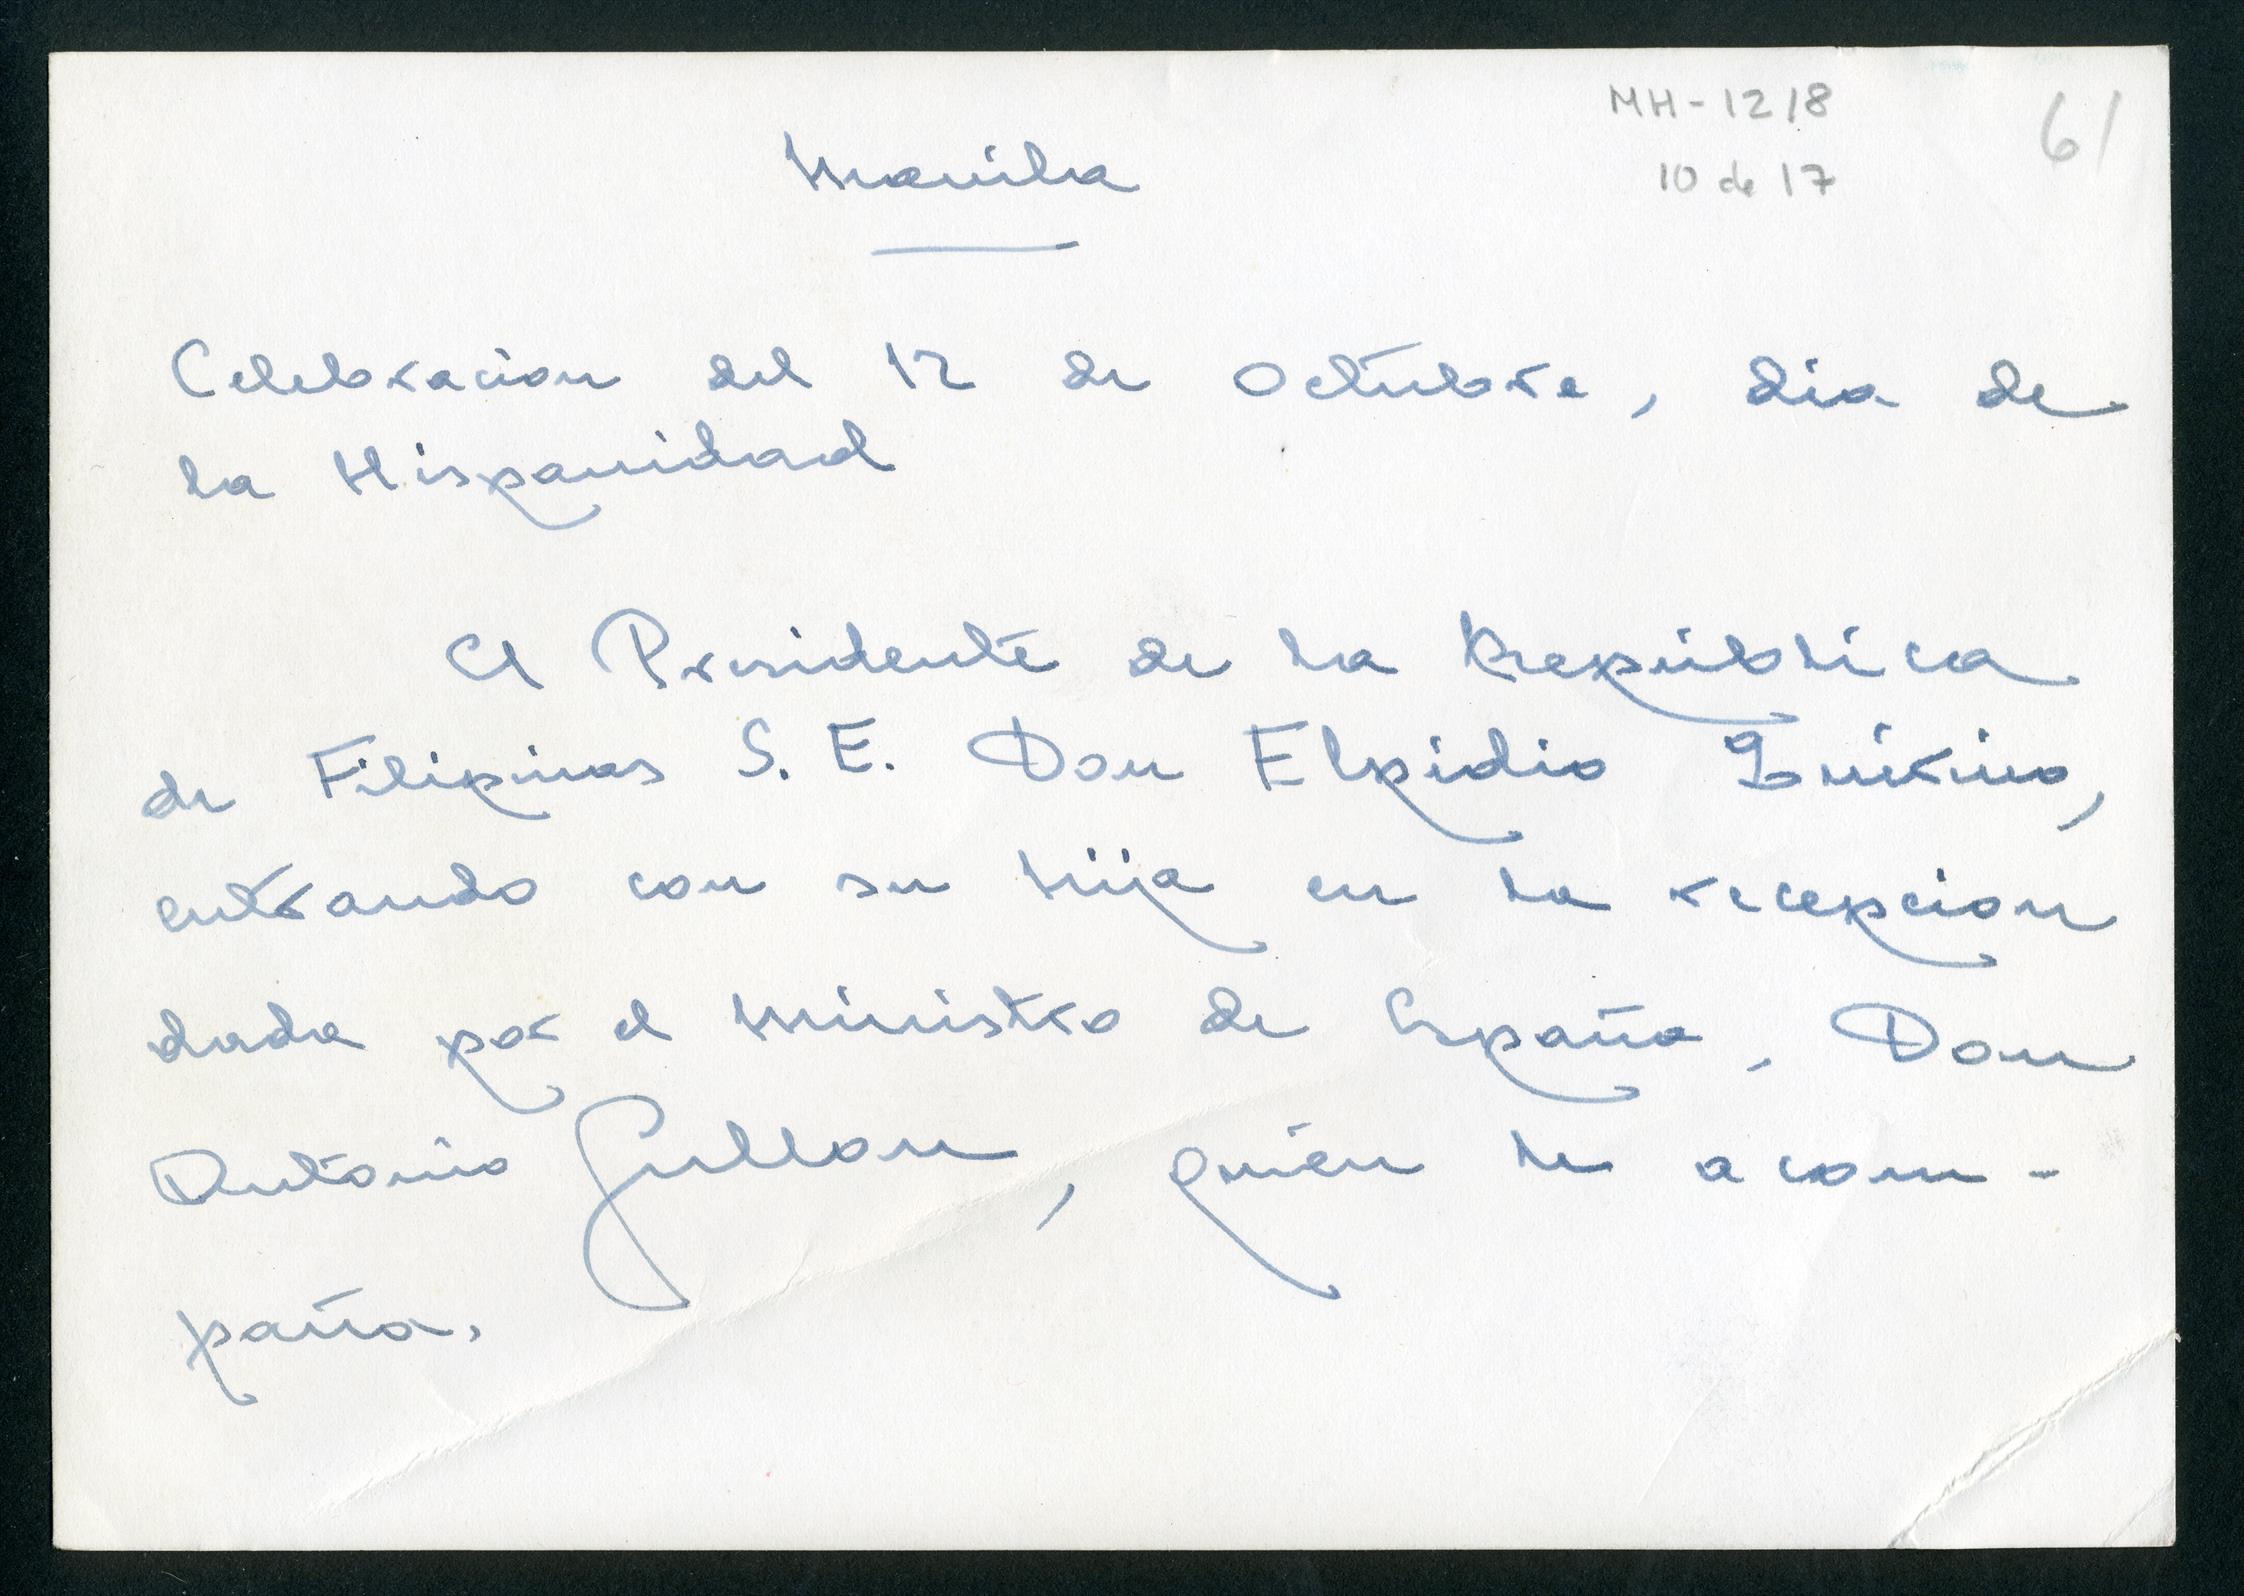 MH-1218
10 de 17
61
Manila
Celebracion del 12 de Octubre, dia de
la Hispanidad
El Presidente de la República
de Filipinas S. E. Don Elpidio Quirino,
entrando con su hija en la recepcion
dada por el Ministro de España, Don
Antonio Gullon, quien le acom-
paña.